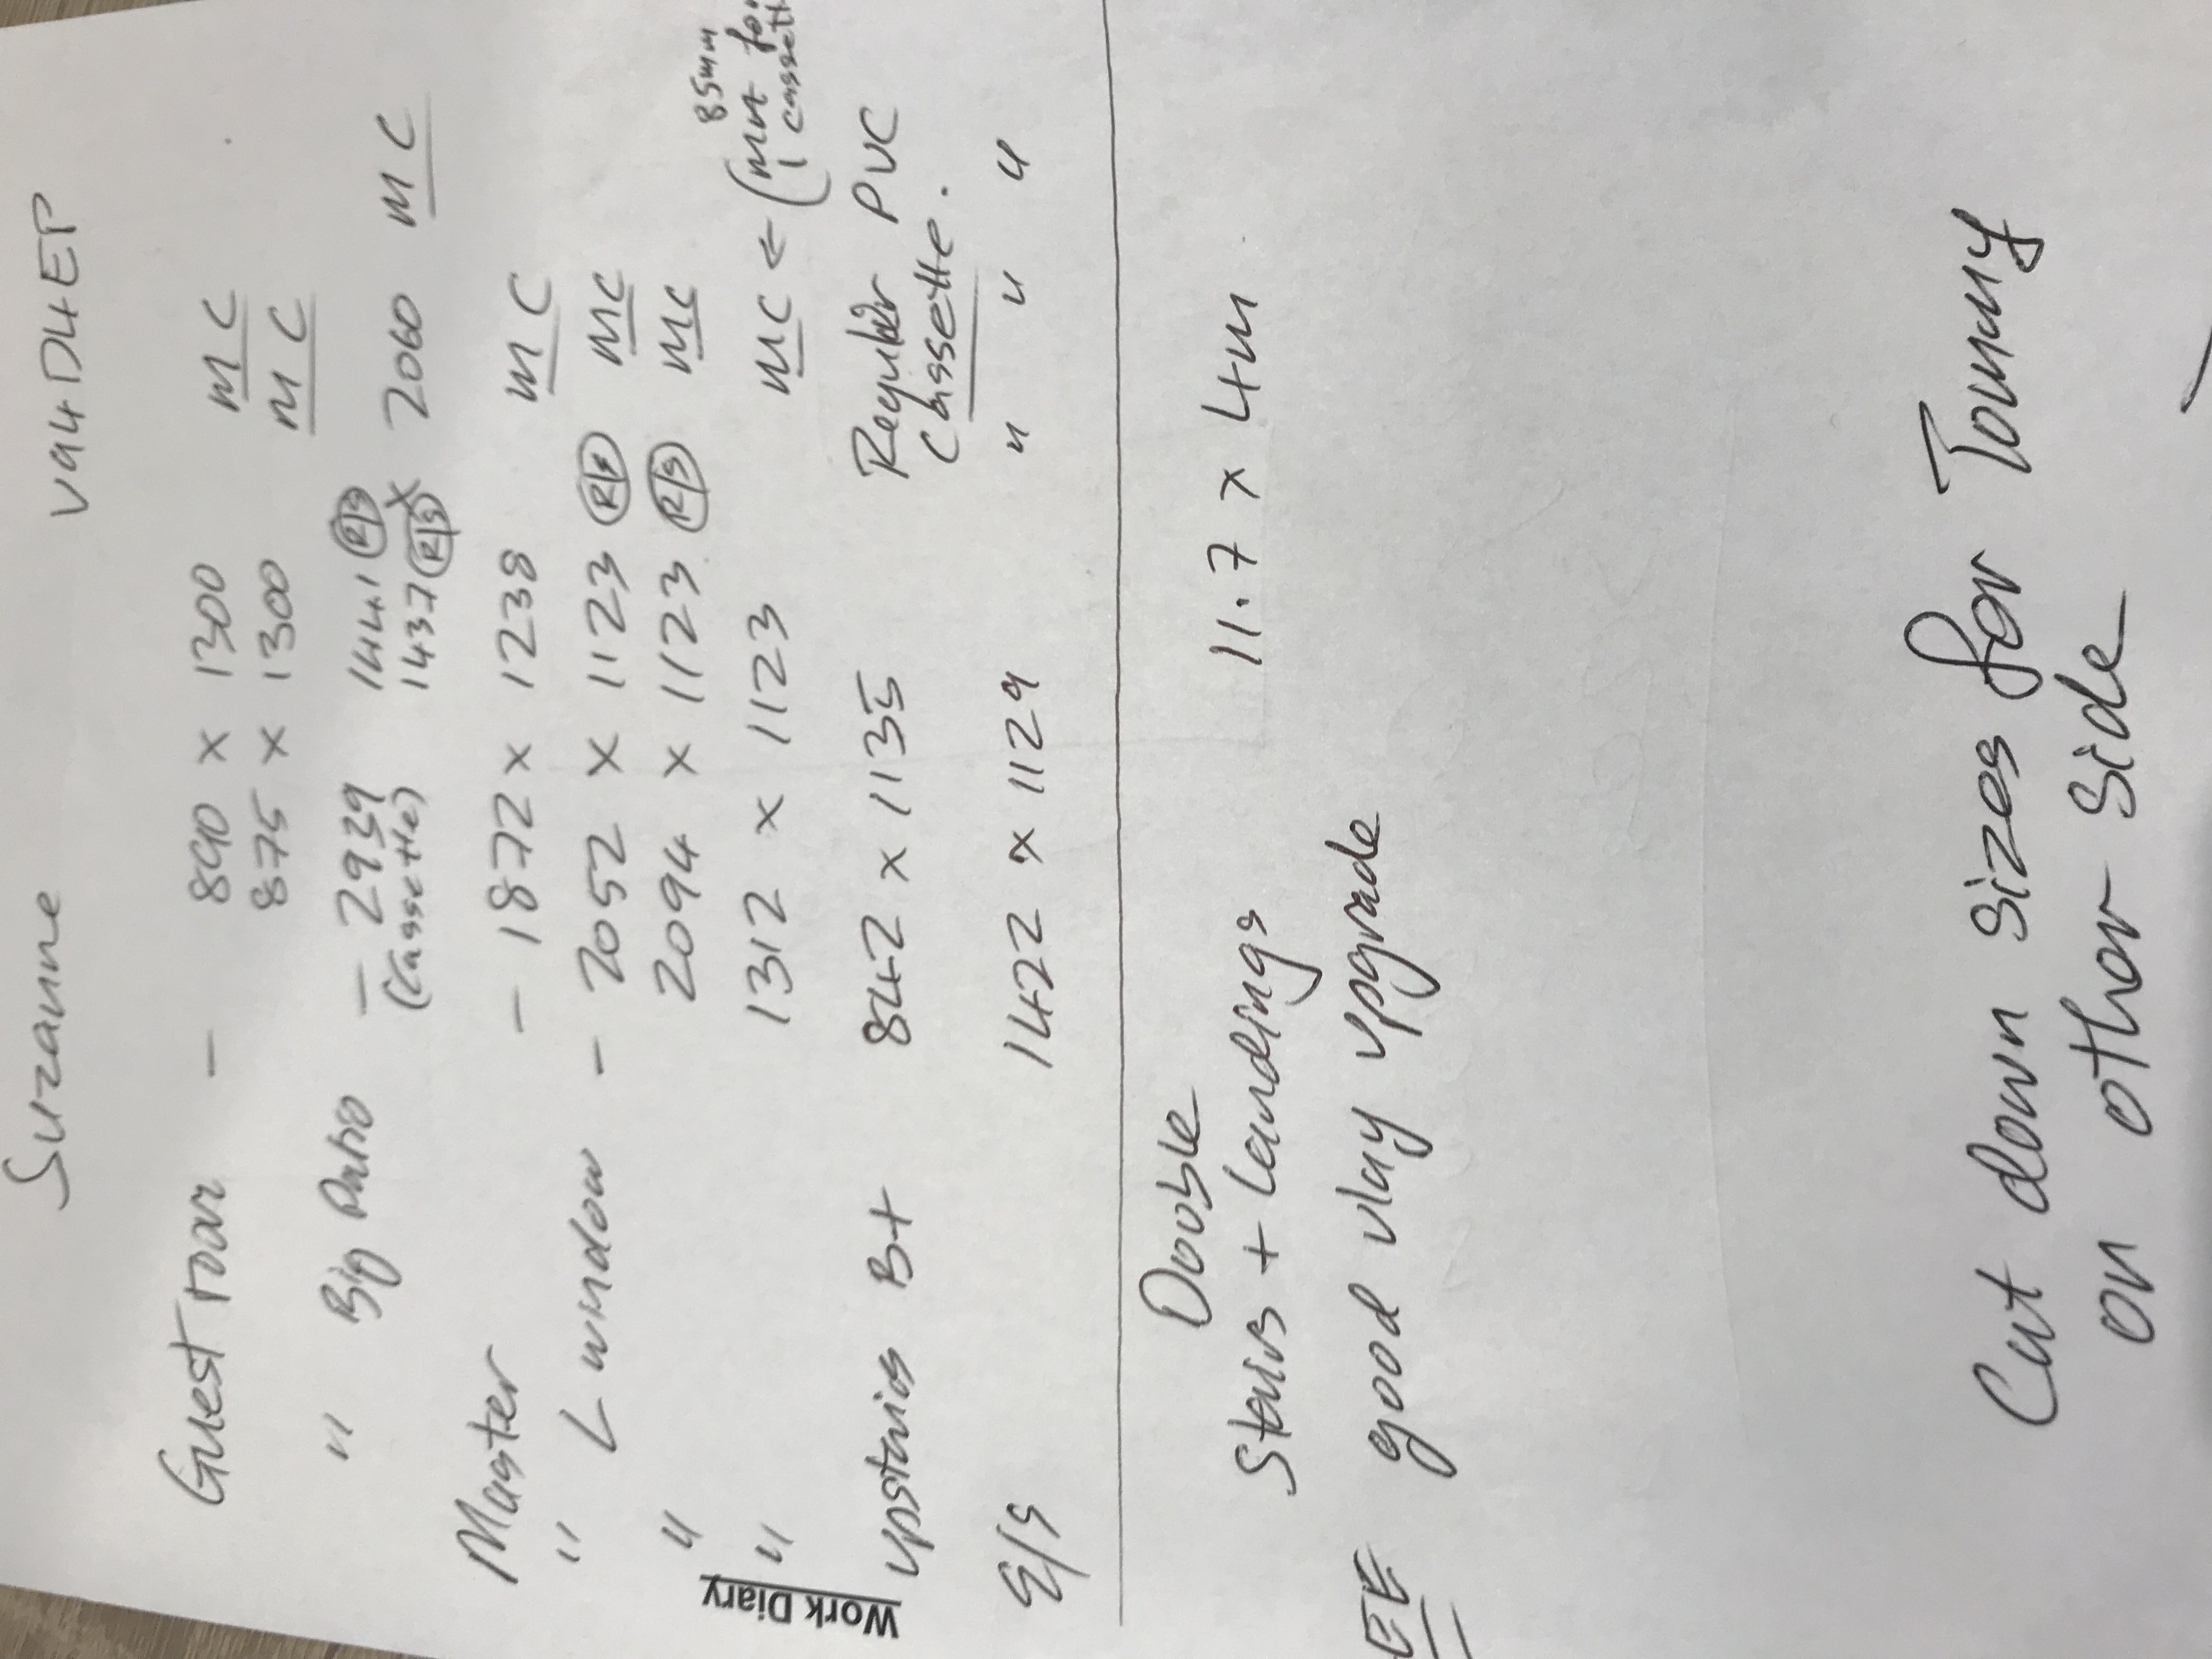 Suzanne V94D4EP
Guest room - 890 x 1300 MC
875 x 1300 MC
" Big Patio - 2939 1441 R/S
(cassette) 1437 R/S x 2060 MC
Master - 1872 x 1238 MC
" L window - 2052 x 1123 R/S MC
" 2094 x 1123 R/S MC
" 1312 x 1123 MC ← (mm for
85mm
1 cassette
Upstairs B+ 842 x 1135 Regular PVC
Cassette.
E/S 1422 x 1129 " " "
Work Diary
Double
Stairs + Landings 11.7 x 4m
EE good vlay upgrade
Cut down sizes for Tommy
on other side